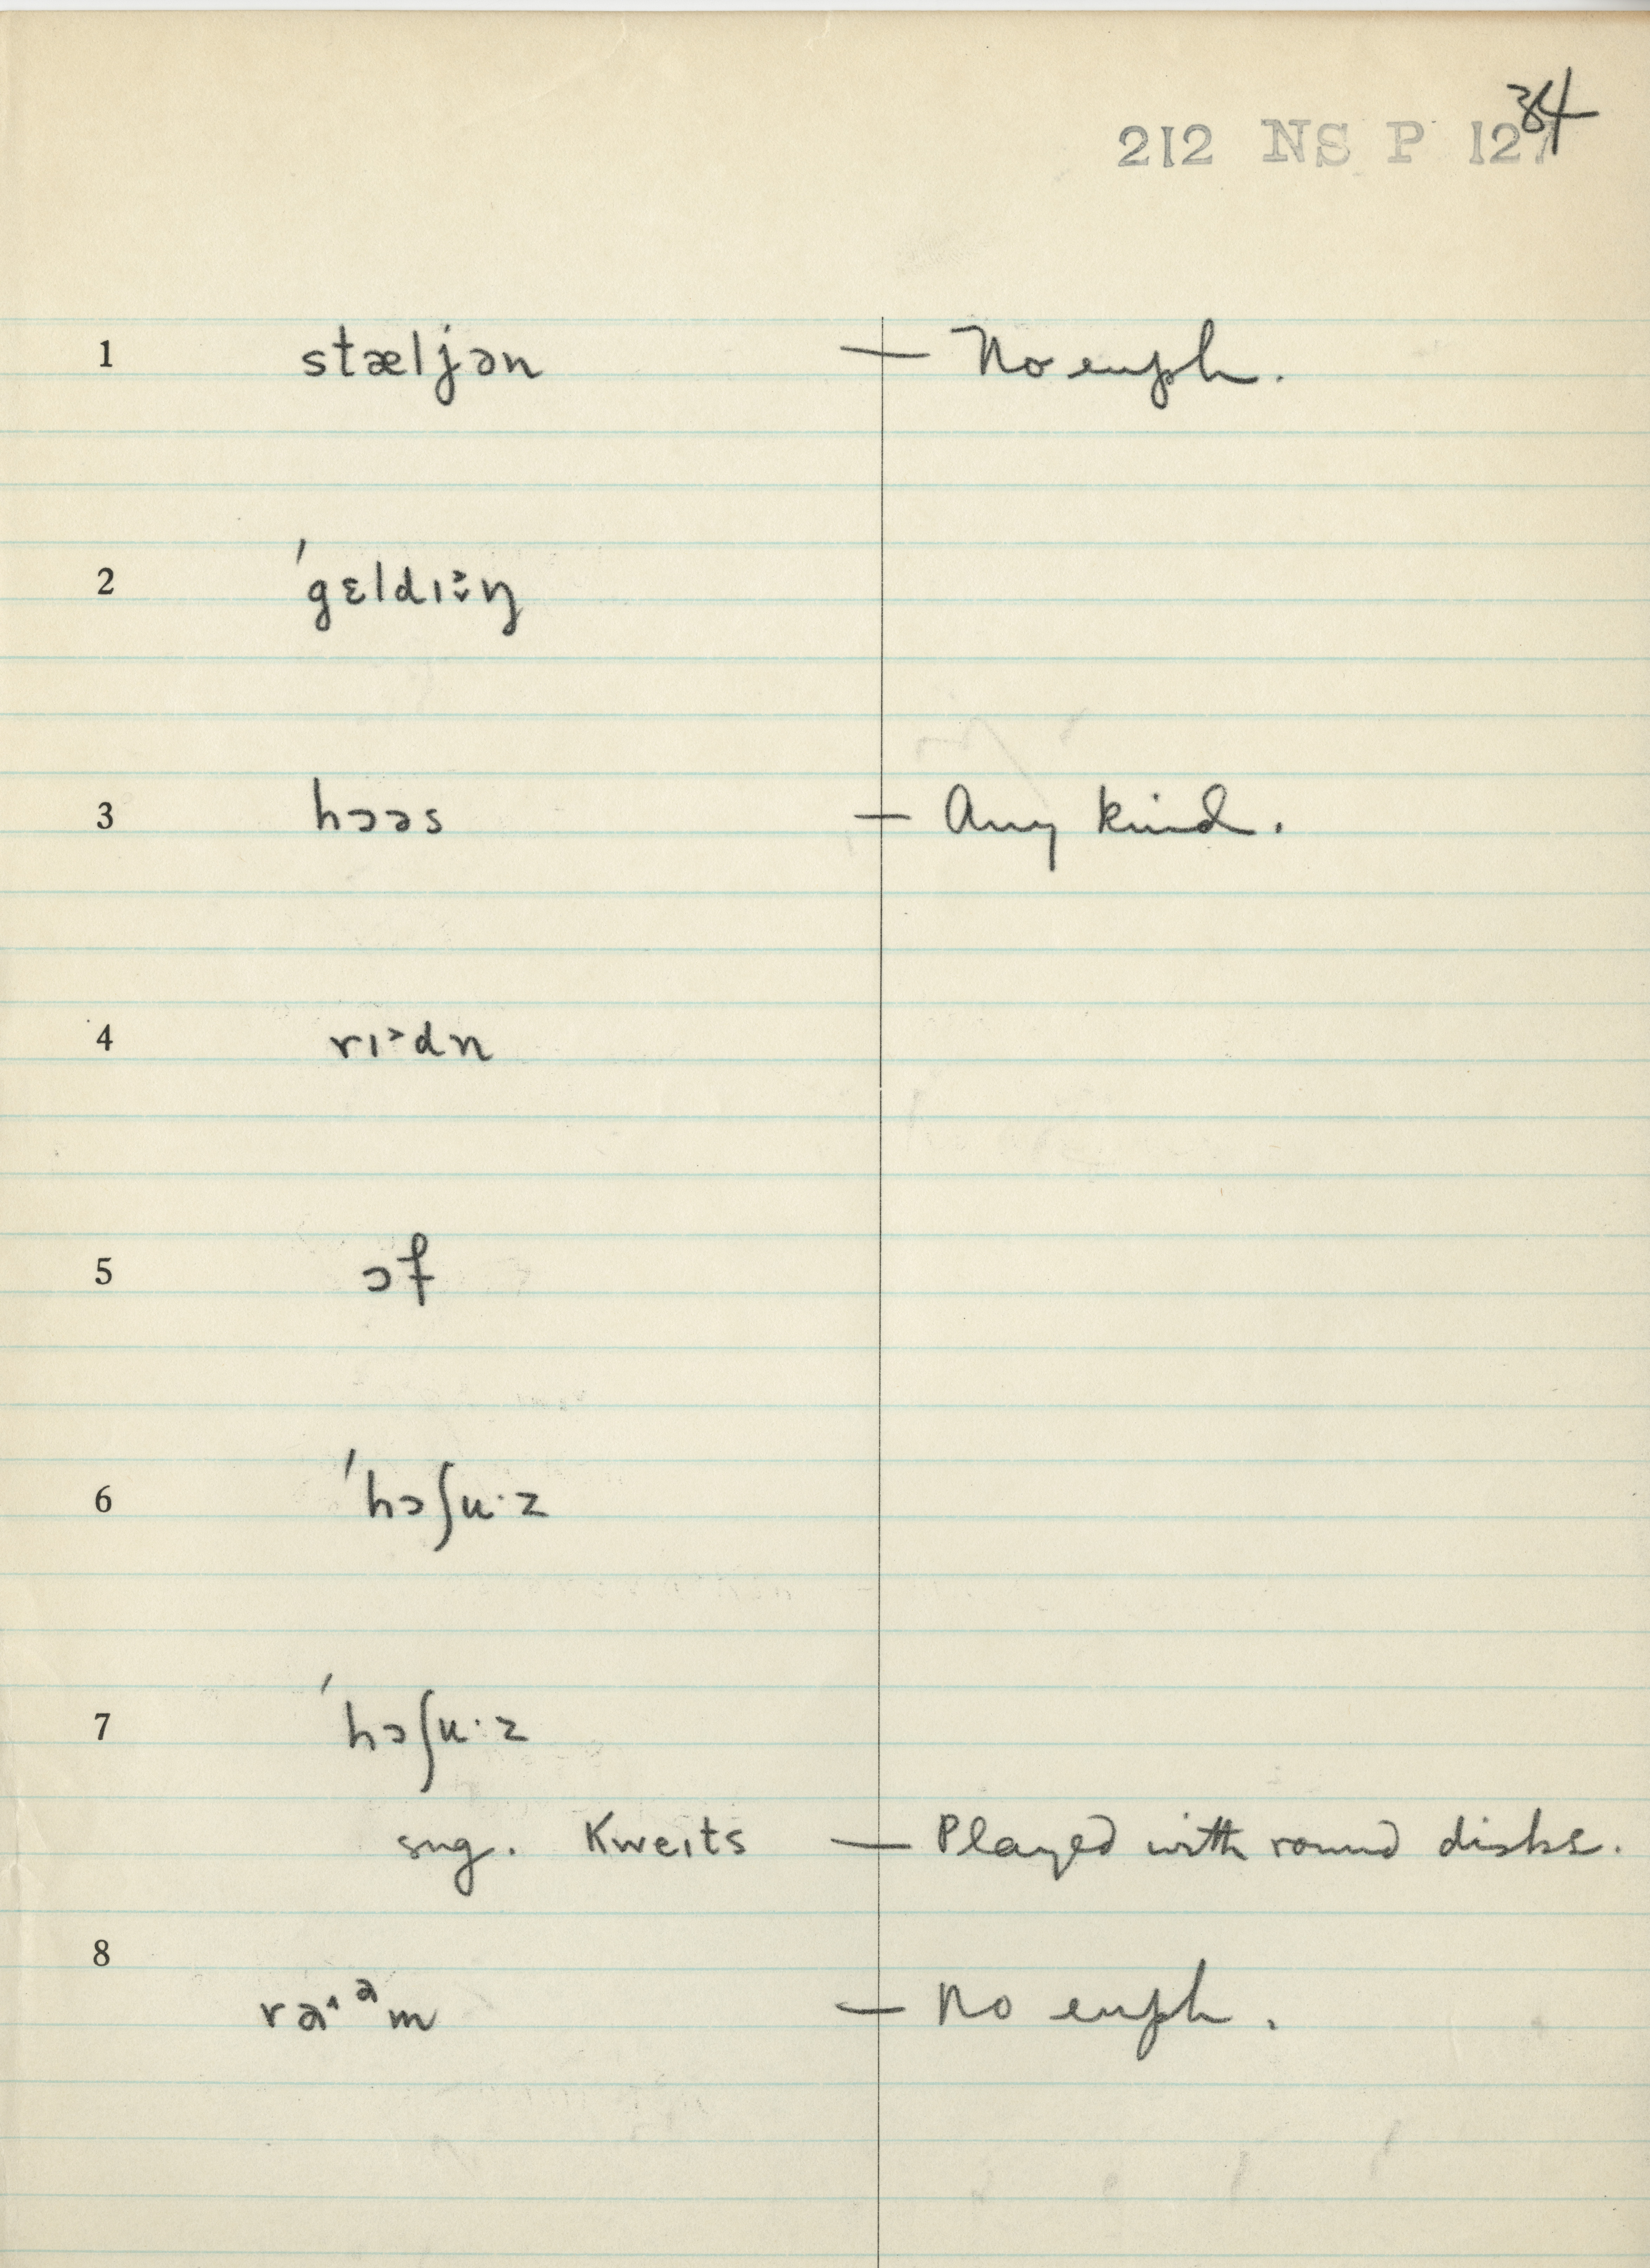 34
212 NS P 127
1 stæljən — No euph.
2 ˈgɛldɪŋ
3 hɔəs — Any kind.
4 rɪ˃dn
5 ɔf
6 ˈhɔʃu·z
7 ˈhɔʃu·z
sug. Kweɪts — Played with round disks.
8 — No euph.